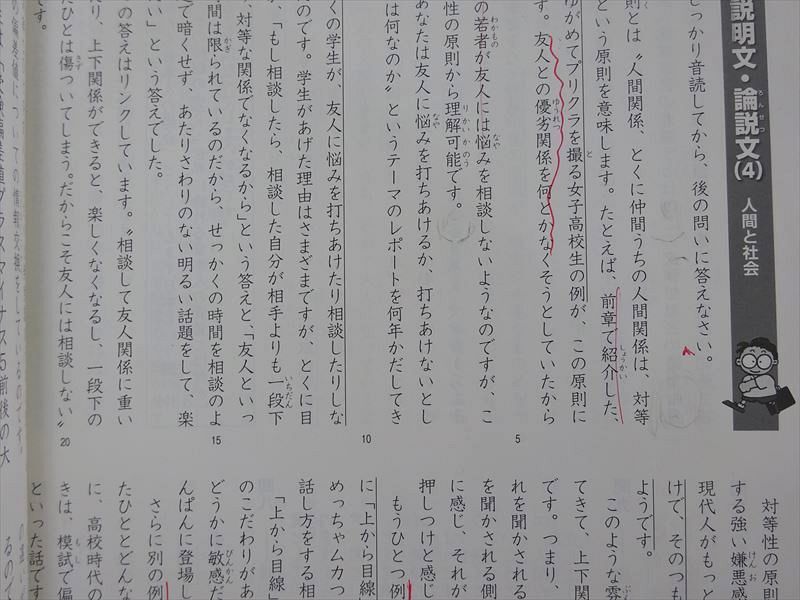 説明文・論説文(4) 人間と社会
ろんせつ
しっかり音読してから、後の問いに答えなさい。
則とは〝人間関係、とくに仲間うちの人間関係は、対等
という原則を意味します。たとえば、前章で紹介した、
しょうかい
ゆがめてプリクラを撮る女子高校生の例が、この原則に
と
す。友人との優劣関係を何とかなくそうとしていたから
ゆうれつ
の若者が友人には悩みを相談しないようなのですが、こ
わかもの
なや
性の原則から理解可能です。
りかいかのう
あなたは友人に悩みを打ちあけるか、打ちあけないとし
なや
は何なのか〟というテーマのレポートを何年かだしてき
くの学生が、友人に悩みを打ちあけたり相談したりしな
のです。学生があげた理由はさまざまですが、とくに目
が、「もし相談したら、相談した自分が相手よりも一段下
いちだん
、対等な関係でなくなるから」という答えと、「友人といっ
時間は限られているのだから、せっかくの時間を相談のよ
かぎ
て暗くせず、あたりさわりのない明るい話題をして、楽
たい」という答えでした。
の答えはリンクしています。〝相談して友人関係に重い
たり、上下関係ができると、楽しくなくなるし、一段下の
たひとは傷ついてしまう。だからこそ友人には相談しない〟
きず
です。
5
10
15
20
対等性の原則
する強い嫌悪感
けんお
現代人がもっと
けで、そのつも
ようです。
このような雰
てきて、上下関
です。つまり、
れを聞かされる
を聞かされる側
に感じ、それが
押しつけと感じ
もうひとつ例
に「上から目線
めっちゃムカつ
話し方をする相
「上から目線」
のこだわりがあ
どうかに敏感だ
びんかん
んぱんに登場し
さらに別の例
たひととどんな
に、高校時代の
きは、模試で偏
もし
といった話です